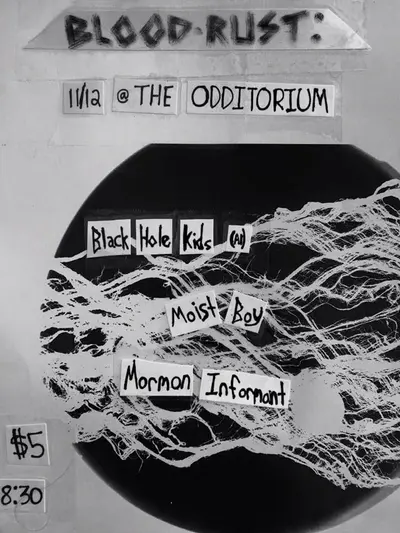 BLOOD·RUST:
11/12 @ THE ODDITORIUM
Black Hole Kids (AL)
Moist Boy
Mormon Informant
$5
8:30